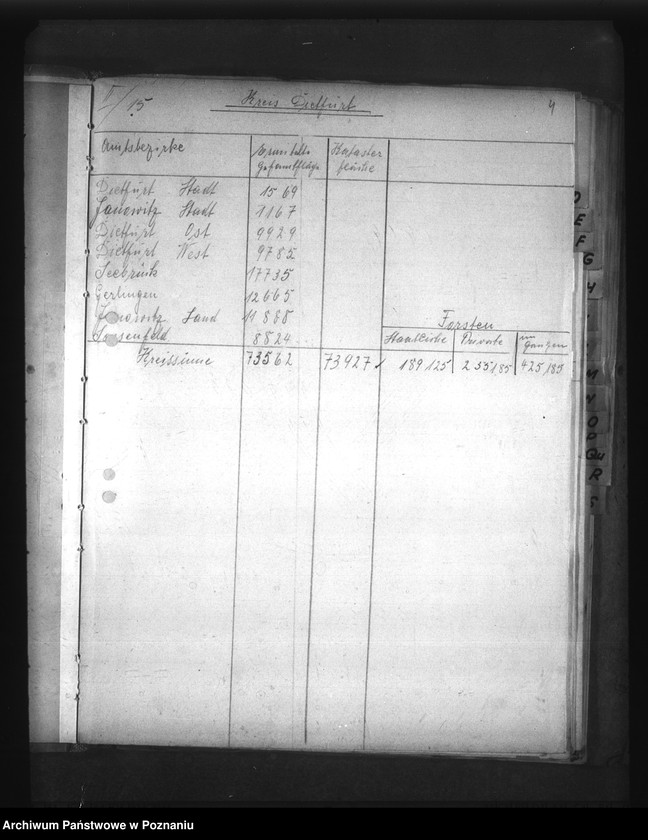 II/15
Kreis Dietfurt
4
Amtsbezirke Gesamtfläche Kataster fläche
Dietfurt Stadt 1569
Janowitz Stadt 1167
Dietfurt Ost 9929
Dietfurt West 9785
Seebrück 17735
Gerlingen 12665
Janowitz Land 11888
Sassenfeld 8824
Forsten
Staatliche Private im Ganzen
Kreissumme 73562 73927 189,125 235,185 425,185
D
E
F
G
H
M
N
O
P
Qu
R
S
Archiwum Państwowe w Poznaniu